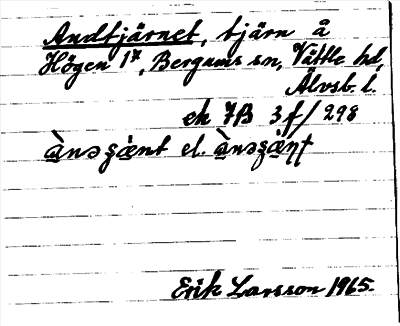 Andtjärnet, tjärn å
Högen 1⁴, Bergums sn, Vättle hd,
Älvsb. l.
ek 7B 3f/298
ànəʂæ̀nt el. ànəʂæ̀ɳʈ
Erik Larsson 1965.